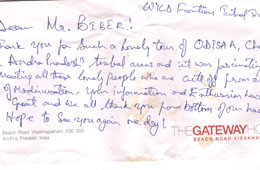 WILD Frontiers Tribal
Dear Mr. BIBER!
Thank you for such a lovely tour of ODISHA,
Andhra Pradesh's tribal areas and it was fascinating
meeting all these lovely people who are cut off from
of Modernisation. Your information and Enthusiasm
Great and We all thank you from bottom of our
Hope to see you again one day!
Beach Road Visakhapatnam 530 002
Andhra Pradesh, India
THE GATEWAY HO
BEACH ROAD VISAKHA